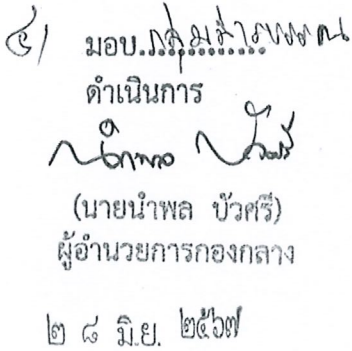 ๔/ มอบ กลุ่มสารบรรณ
ดำเนินการ
(นายนำพล บัวศรี)
ผู้อำนวยการกองกลาง
๒ ๘ มิ.ย. ๒๕๖๗